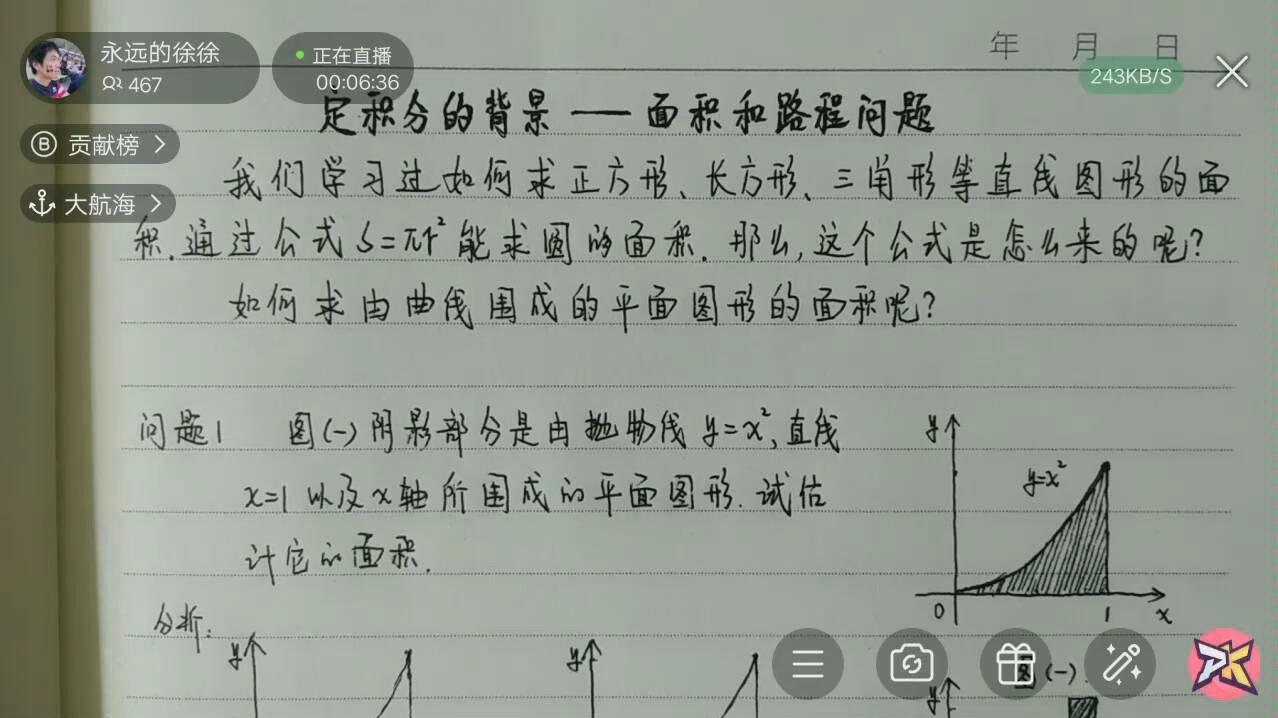 永远的徐徐
467
正在直播
00:06:36
年 月 日
243KB/S
贡献榜
大航海
定积分的背景——面积和路程问题
我们学习过如何求正方形、长方形、三角形等直线图形的面
积.通过公式S=πr²能求圆的面积.那么,这个公式是怎么来的呢?
如何求由曲线围成的平面图形的面积呢?
问题1 图(一)阴影部分是由抛物线y=x²,直线
x=1以及x轴所围成的平面图形.试估
计它的面积.
y
y=x²
0 1 x
图(一).
分析:
y
y
y
PK